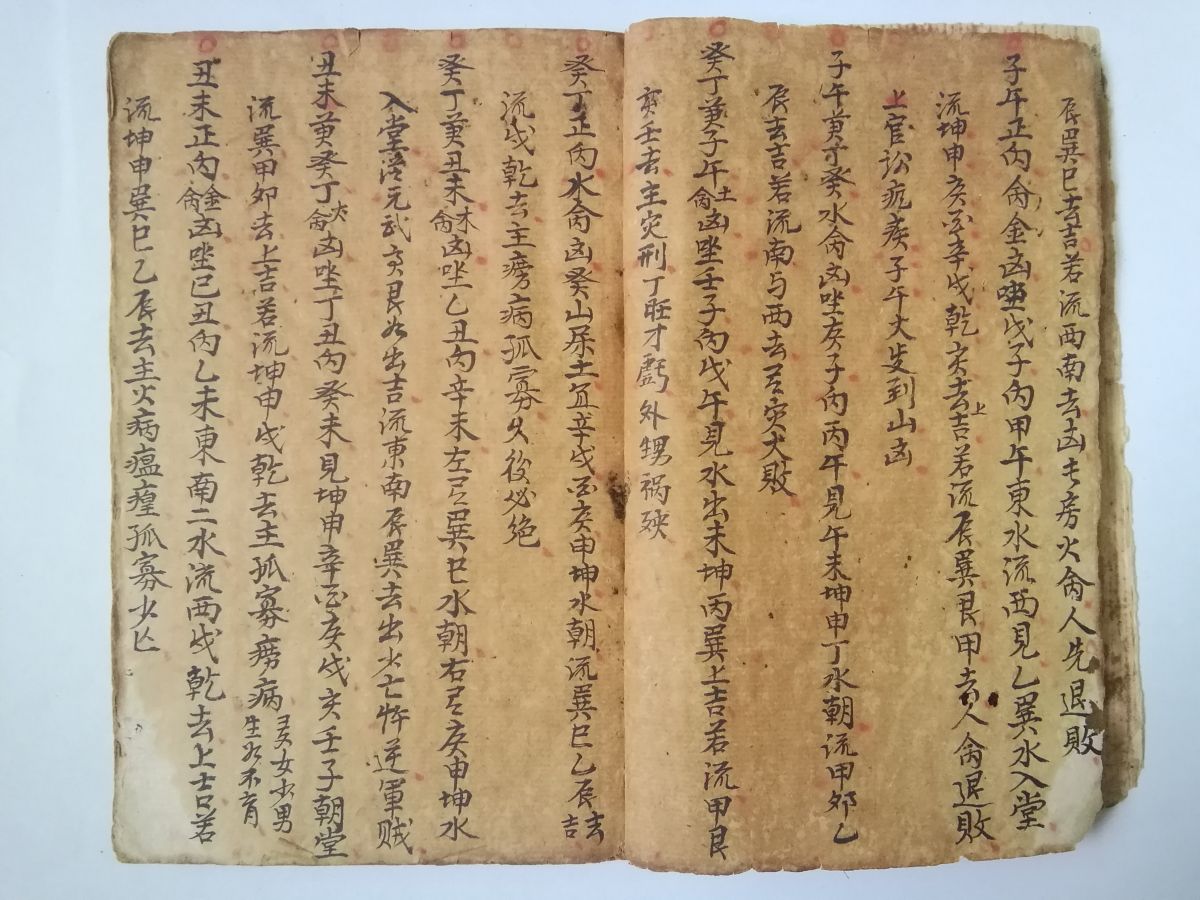 辰巽巳去吉若流西南去凶长房火禽人先退敗
子午正内禽金凶坐戊子内甲午東水流西見乙巽水入堂
流坤申亥辛戌乾亥去上吉若流辰巽艮甲去人禽退敗
上官訟疾子午大到山凶
子午兼癸水禽凶坐庚子内丙午見午未坤申丁水朝流甲夘乙
辰去吉若流南与西去大敗
癸丁兼子午土禽凶坐壬子内戊午見水出未坤丙巽上吉若流甲艮
亥壬去主灾刑丁旺才虧外甥祸殃
癸丁正内水禽凶癸山辛戌庚申坤水朝流巽巳乙辰去吉
流戌乾去主痨病孤寡久後必绝
癸丁兼丑未木禽凶坐乙丑内辛未左巽巳水朝右庚申坤水
入堂元武艮出吉流東南辰巽去出少亡忤逆軍贼
丑未兼癸丁火禽凶坐丁丑内癸未見坤申辛庚戌亥壬子朝堂
流巽甲夘去上吉若流坤申戌乾去主孤寡痨病女少男生不育
丑未正内金禽凶坐巳丑内乙未東南二水流西戌乾去上吉若
流坤申巽巳乙辰去主火病瘟瘟孤寡少亡